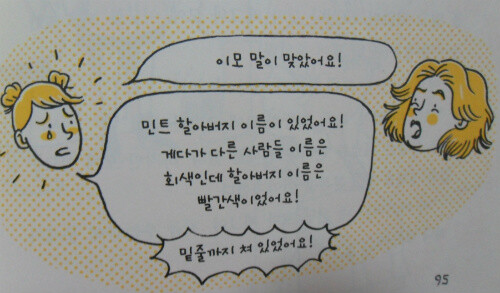 이모 말이 맞았어요!
민트 할아버지 이름이 있었어요!
게다가 다른 사람들 이름은
회색인데 할아버지 이름은
빨간색이었어요!
밑줄까지 쳐 있었어요!
95